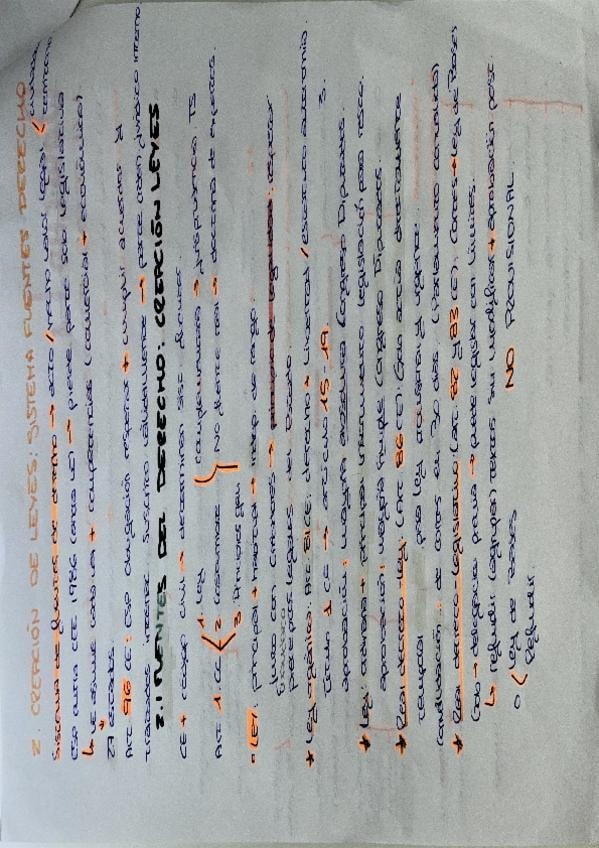 2. CREACIÓN DE LEYES: SISTEMA FUENTES DERECHO
Sistema de fuentes de derecho → acto / hecho crea ley < ciudad. territorio
ESP entra CEE 1986 (ahora UE) → pierde parte sob legislativa
↳ UE asume cada vez + competencias (comercial + económico)
27 estados.
Art 96 CE: ESP obligación respetar + cumplir acuerdos y
tratados internac. Suscrito válidamente → parte orden jurídico interno.
2.1 FUENTES DEL DERECHO: CREACIÓN LEYES
CE + código civil → determinan sist. fuentes.
Art 1. CC < 1. Ley
2. Costumbre
3. Principios gen.
complementaria → jurisprudencia TS
No fuente real → doctrina de expertos.
• LEY: principal + habitual → indep. de rango.
Junto con respetar
principios legales del Estado
* Ley orgánica: Art 81 CE: derecho + libertad / estatuto autonomía
Título 1 CE → artículo 15-29.
aprobación: mayoría absoluta (Congreso Diputados.
* Ley: ordinaria + principal instrumento legislación para
aprobación: mayoría simple (Congreso Diputados.
* Real decreto-ley: (Art 86 CE) Gob actúa directamente
temporal por ley y urgente.
Convalidación: de Cortes en 30 días. (Parlamento convalida)
* Real decreto legislativo (Art. 82 y 83 CE). Cortes → ley de Bases
Gob → delegación para → puede legislar con límites.
↳ refundir (agrupar) textos sin modificar + aprobación post.
o < ley de Bases NO PROVISIONAL
Refundir.